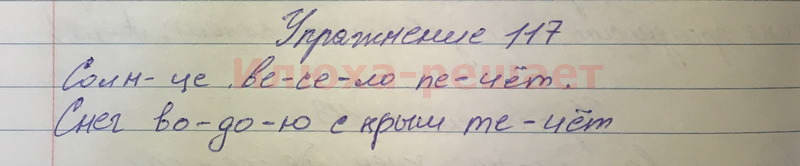 Упражнение 117
Солн-це ве-се-ло пе-чёт.
Снег во-до-ю с крыш те-чёт
Илюха-решает